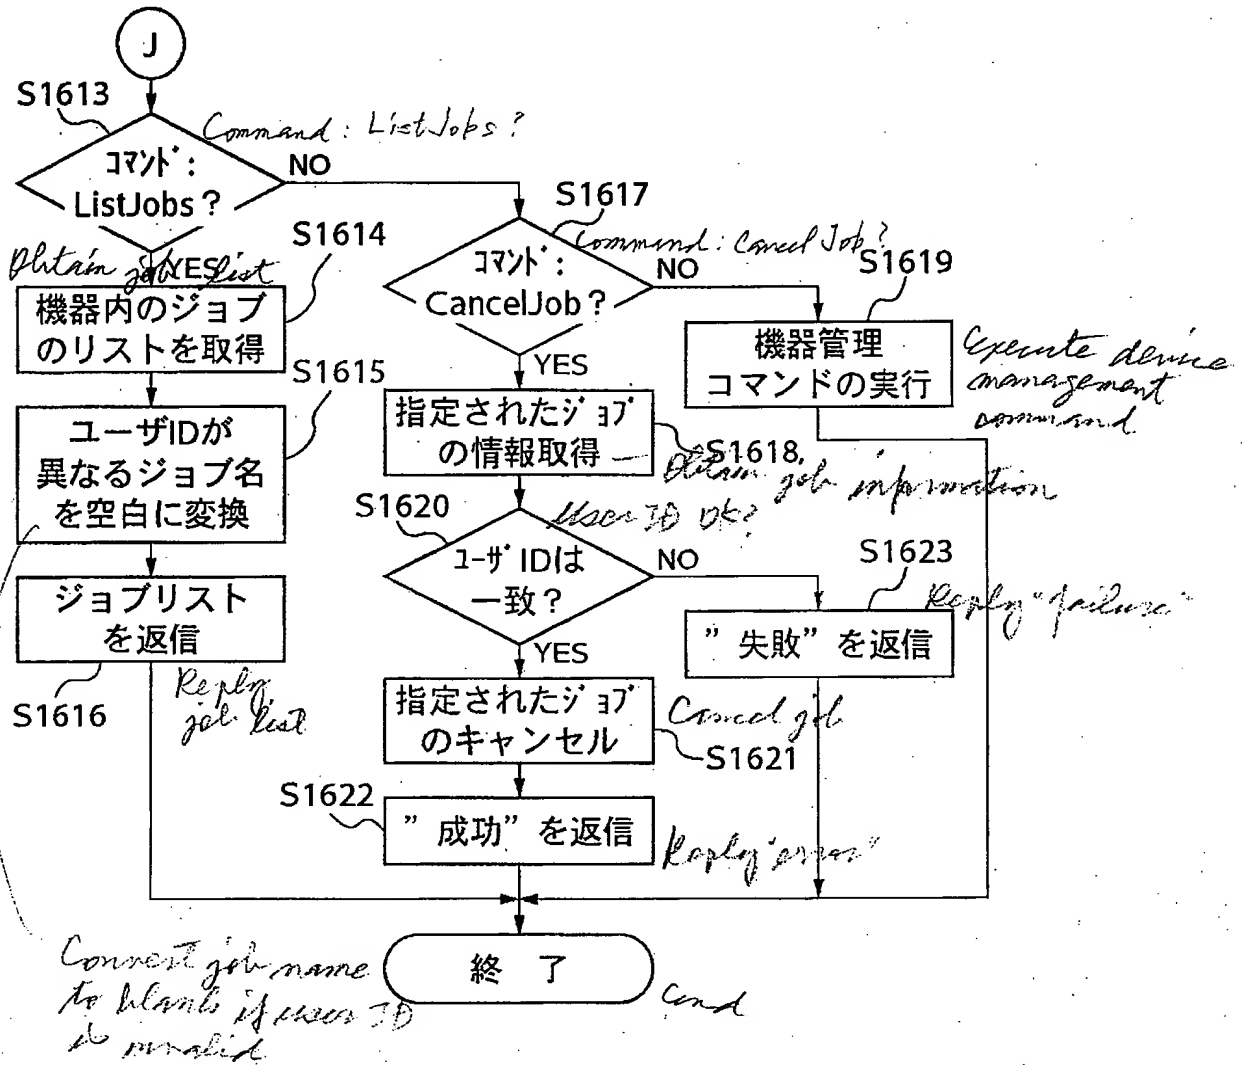 J
S1613
Command: ListJobs?
コマンド:
ListJobs?
NO
YES
Obtain job list
S1614
機器内のジョブ
のリストを取得
S1615
ユーザIDが
異なるジョブ名
を空白に変換
ジョブリスト
を返信
S1616
Reply
job list
S1617
Command: Cancel Job?
コマンド:
CancelJob?
NO
YES
S1619
機器管理
コマンドの実行
Execute device
management
command
指定されたジョブ
の情報取得
S1618
Obtain job information
S1620
User ID OK?
ユーザIDは
一致?
NO
YES
S1623
Reply "failure"
”失敗”を返信
指定されたジョブ
のキャンセル
Cancel job
S1621
S1622
”成功”を返信
Reply "error"
終 了
end
Convert job name
to blanks if user ID
is invalid